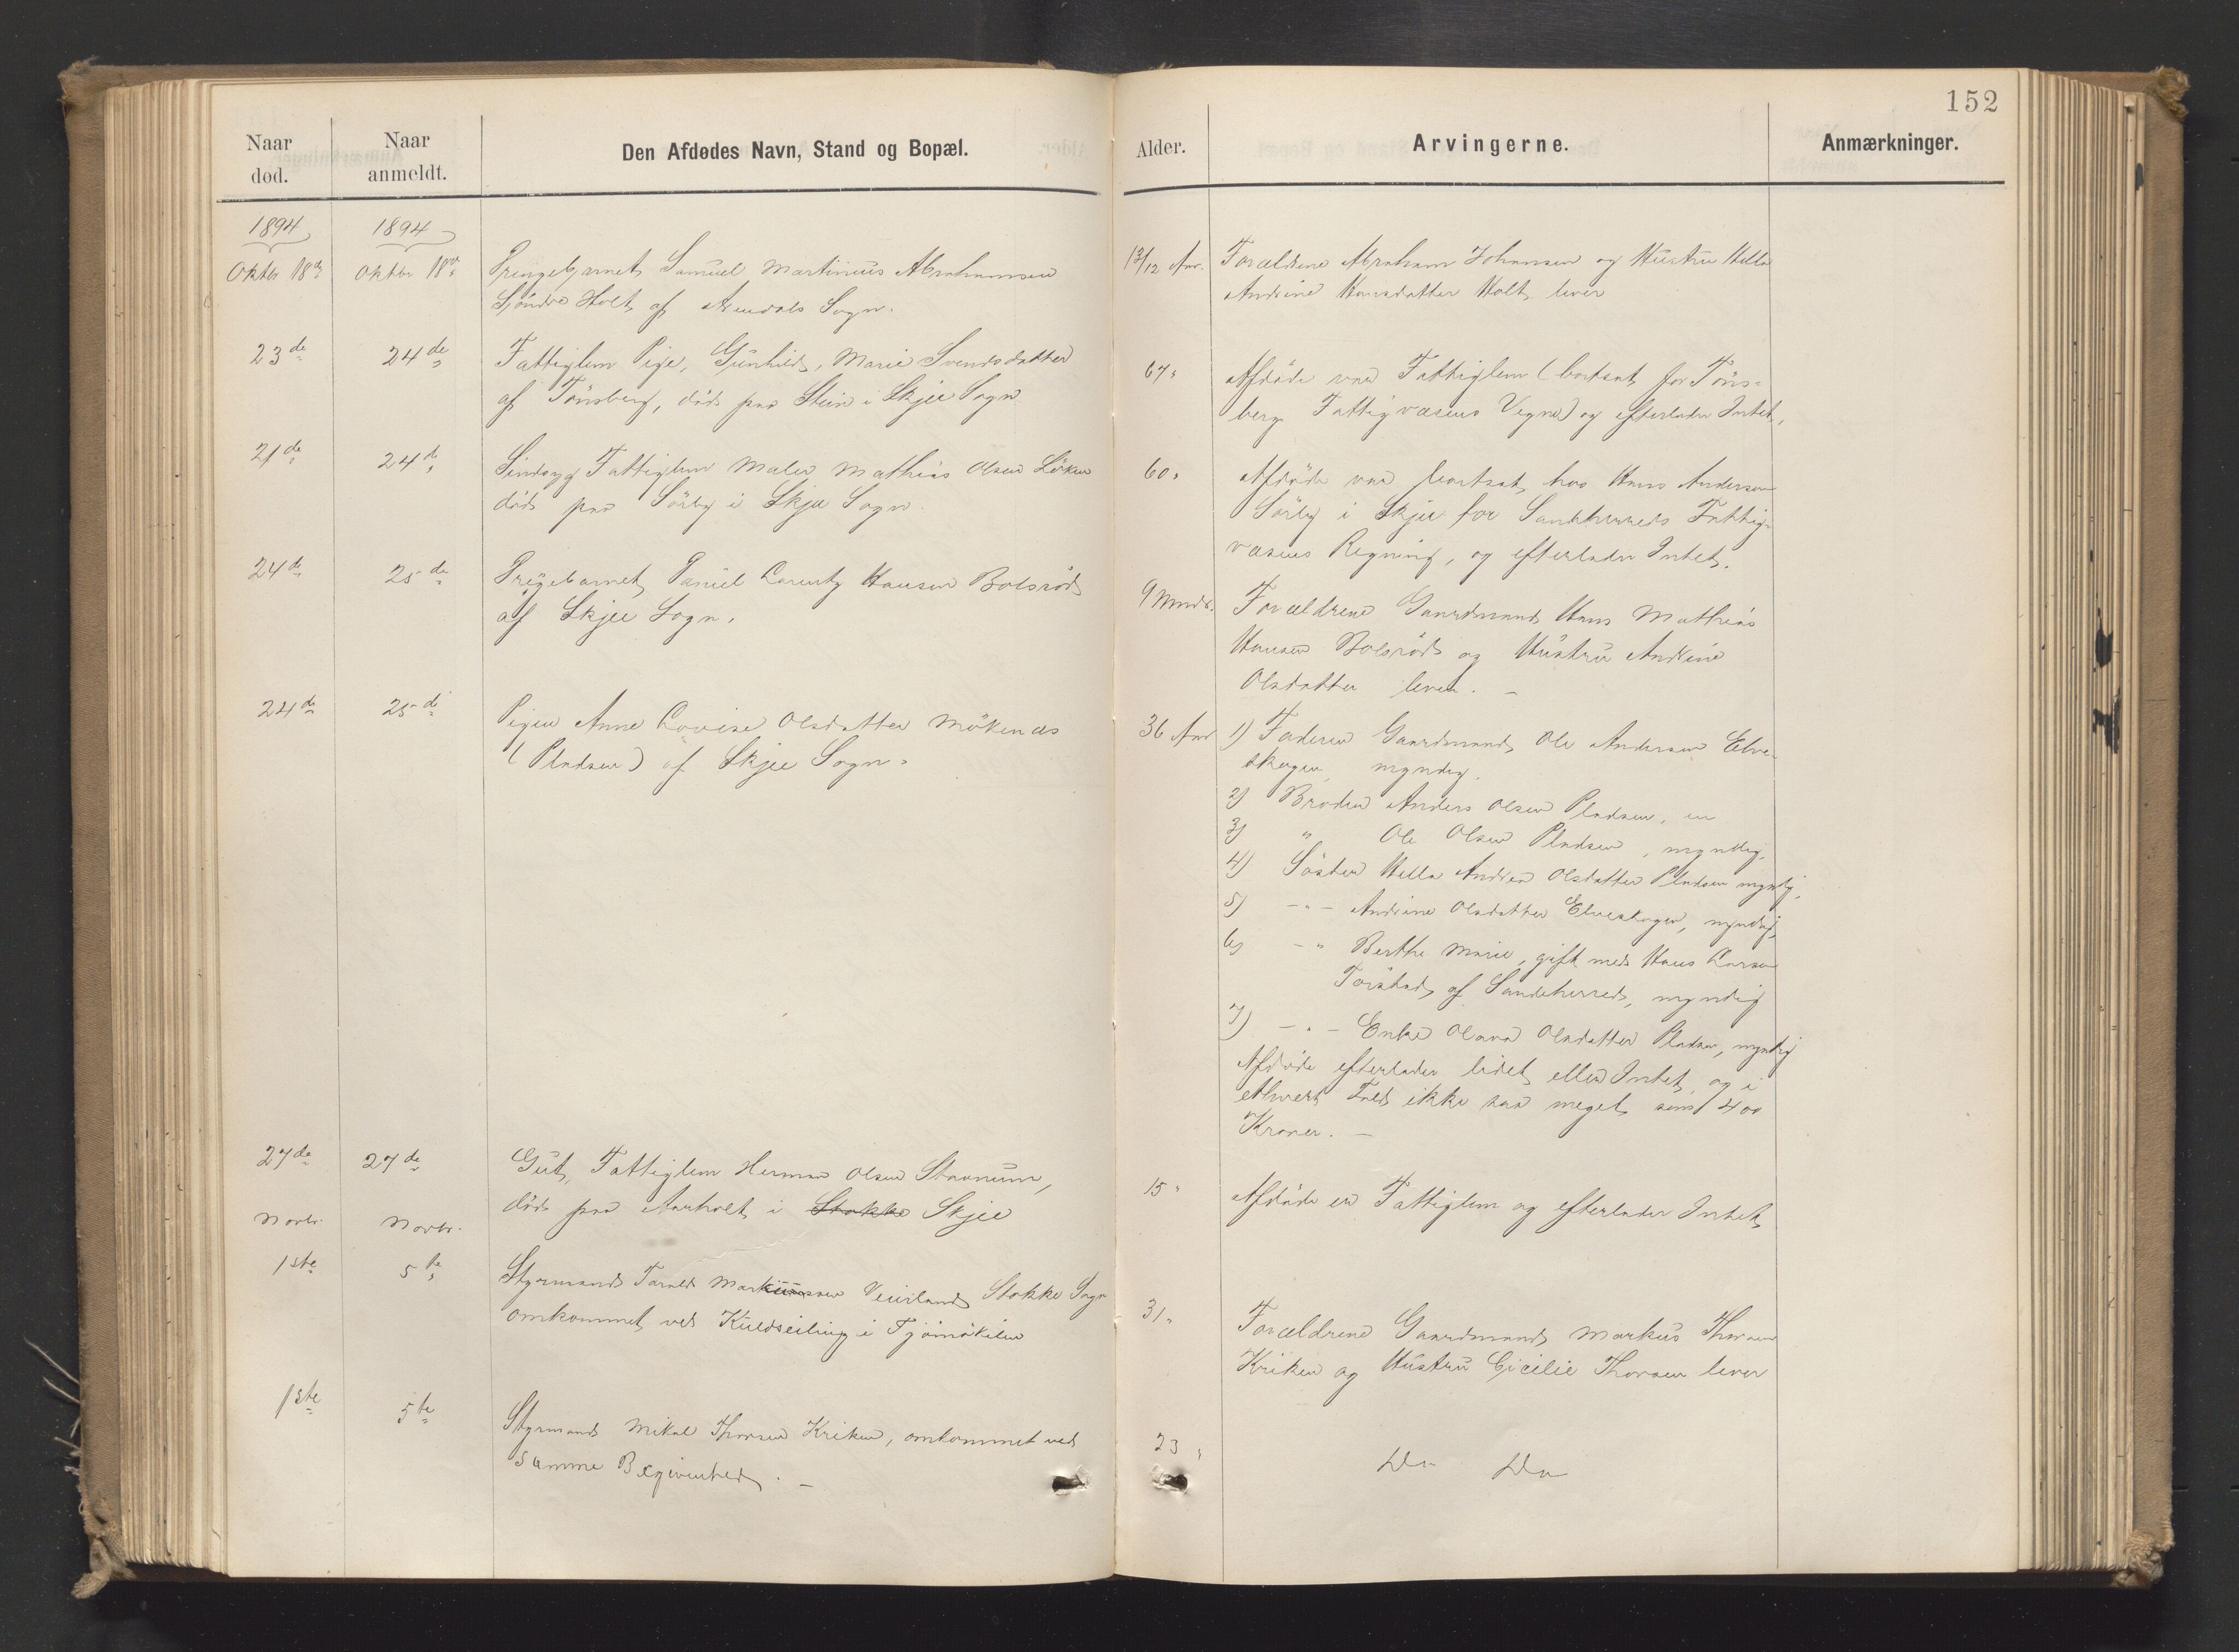 152
Naar død.
Naar anmeldt.
Den Afdødes Navn, Stand og Bopæl.
Alder.
Arvingerne.
Anmærkninger.
1894
1894
Oktbr 18de
Oktbr 18de
Drengebarnet Samuel Martinius Abrahamsen
Søndre Holt af Arendals Sogn.
12/12 Aar.
Forældrene Abraham Johansen og Hustru Hella
Andrine Hansdatter Holt lever
23de
24de
Fattiglem Pige, Gunhild, Marie Svendsdatter
af Tönsberg, död paa Stein i Skjee Sogn
67"
Afdöde var Fattiglem (bortsat for Töns-
berg Fattigvæsens Vegne) og efterlader Intet.
21de
24de
Sindsyg Fattiglem Maler Mathias Olsen Löken
död paa Sörby i Skjee Sogn.
60"
Afdöde var bortsat hos Hans Andersen
Sörby i Skjee for Sandeherreds Fattig-
væsens Regning, og efterlader Intet.
24de
25de
Drengebarnet Daniel Lorentz Hansen Bolsröd
af Skjee Sogn.
9 Mndr.
Forældrene Gaardmand Hans Mathias
Hansen Bolsröd og Hustru Andrine
Olsdatter lever. –
24de
25de
Pigen Anne Lovise Olsdatter Mökenæs
(Pladsen) af Skjee Sogn.
36 Aar
1) Faderen Gaardmand Ole Andersen Elve-
skogen myndig.
2) Broder Anders Olsen Pladsen, "
3) " Ole Olsen Pladsen, myndig.
4) Söster Hella Andrea Olsdatter Pladsen myndig.
5) –"– Andrine Olsdatter Elveskogen, myndig,
6) –" Berthe Marie, gift med Hans Larsen
af Sandeherred, myndig
7) –"– Enke Olava Olsdatter Pladsen, myndig
Afdöde efterlader lidet eller Intet, og i
ethvert Fald ikke saa meget som 400
Kroner. –
27de
27de
Gut, Fattiglem Herman Olsen Stavnum,
död paa Aarholt i Stokke Skjee
15"
Afdöde er Fattiglem og efterlader Intet
Novbr.
Novbr.
1ste
5te
Styrmand Tarald Markussen Veierland Stokke Sogn
omkommet ved Kuldseiling i Tjömekilen
31"
Forældrene Gaardmand Markus Thorsen
Kriken og Hustru Cicilie Thorsen lever
1ste
5te
Styrmand Mikal Thorsen Kriken, omkommet ved
Samme Begivenhed. –
23"
Do Do